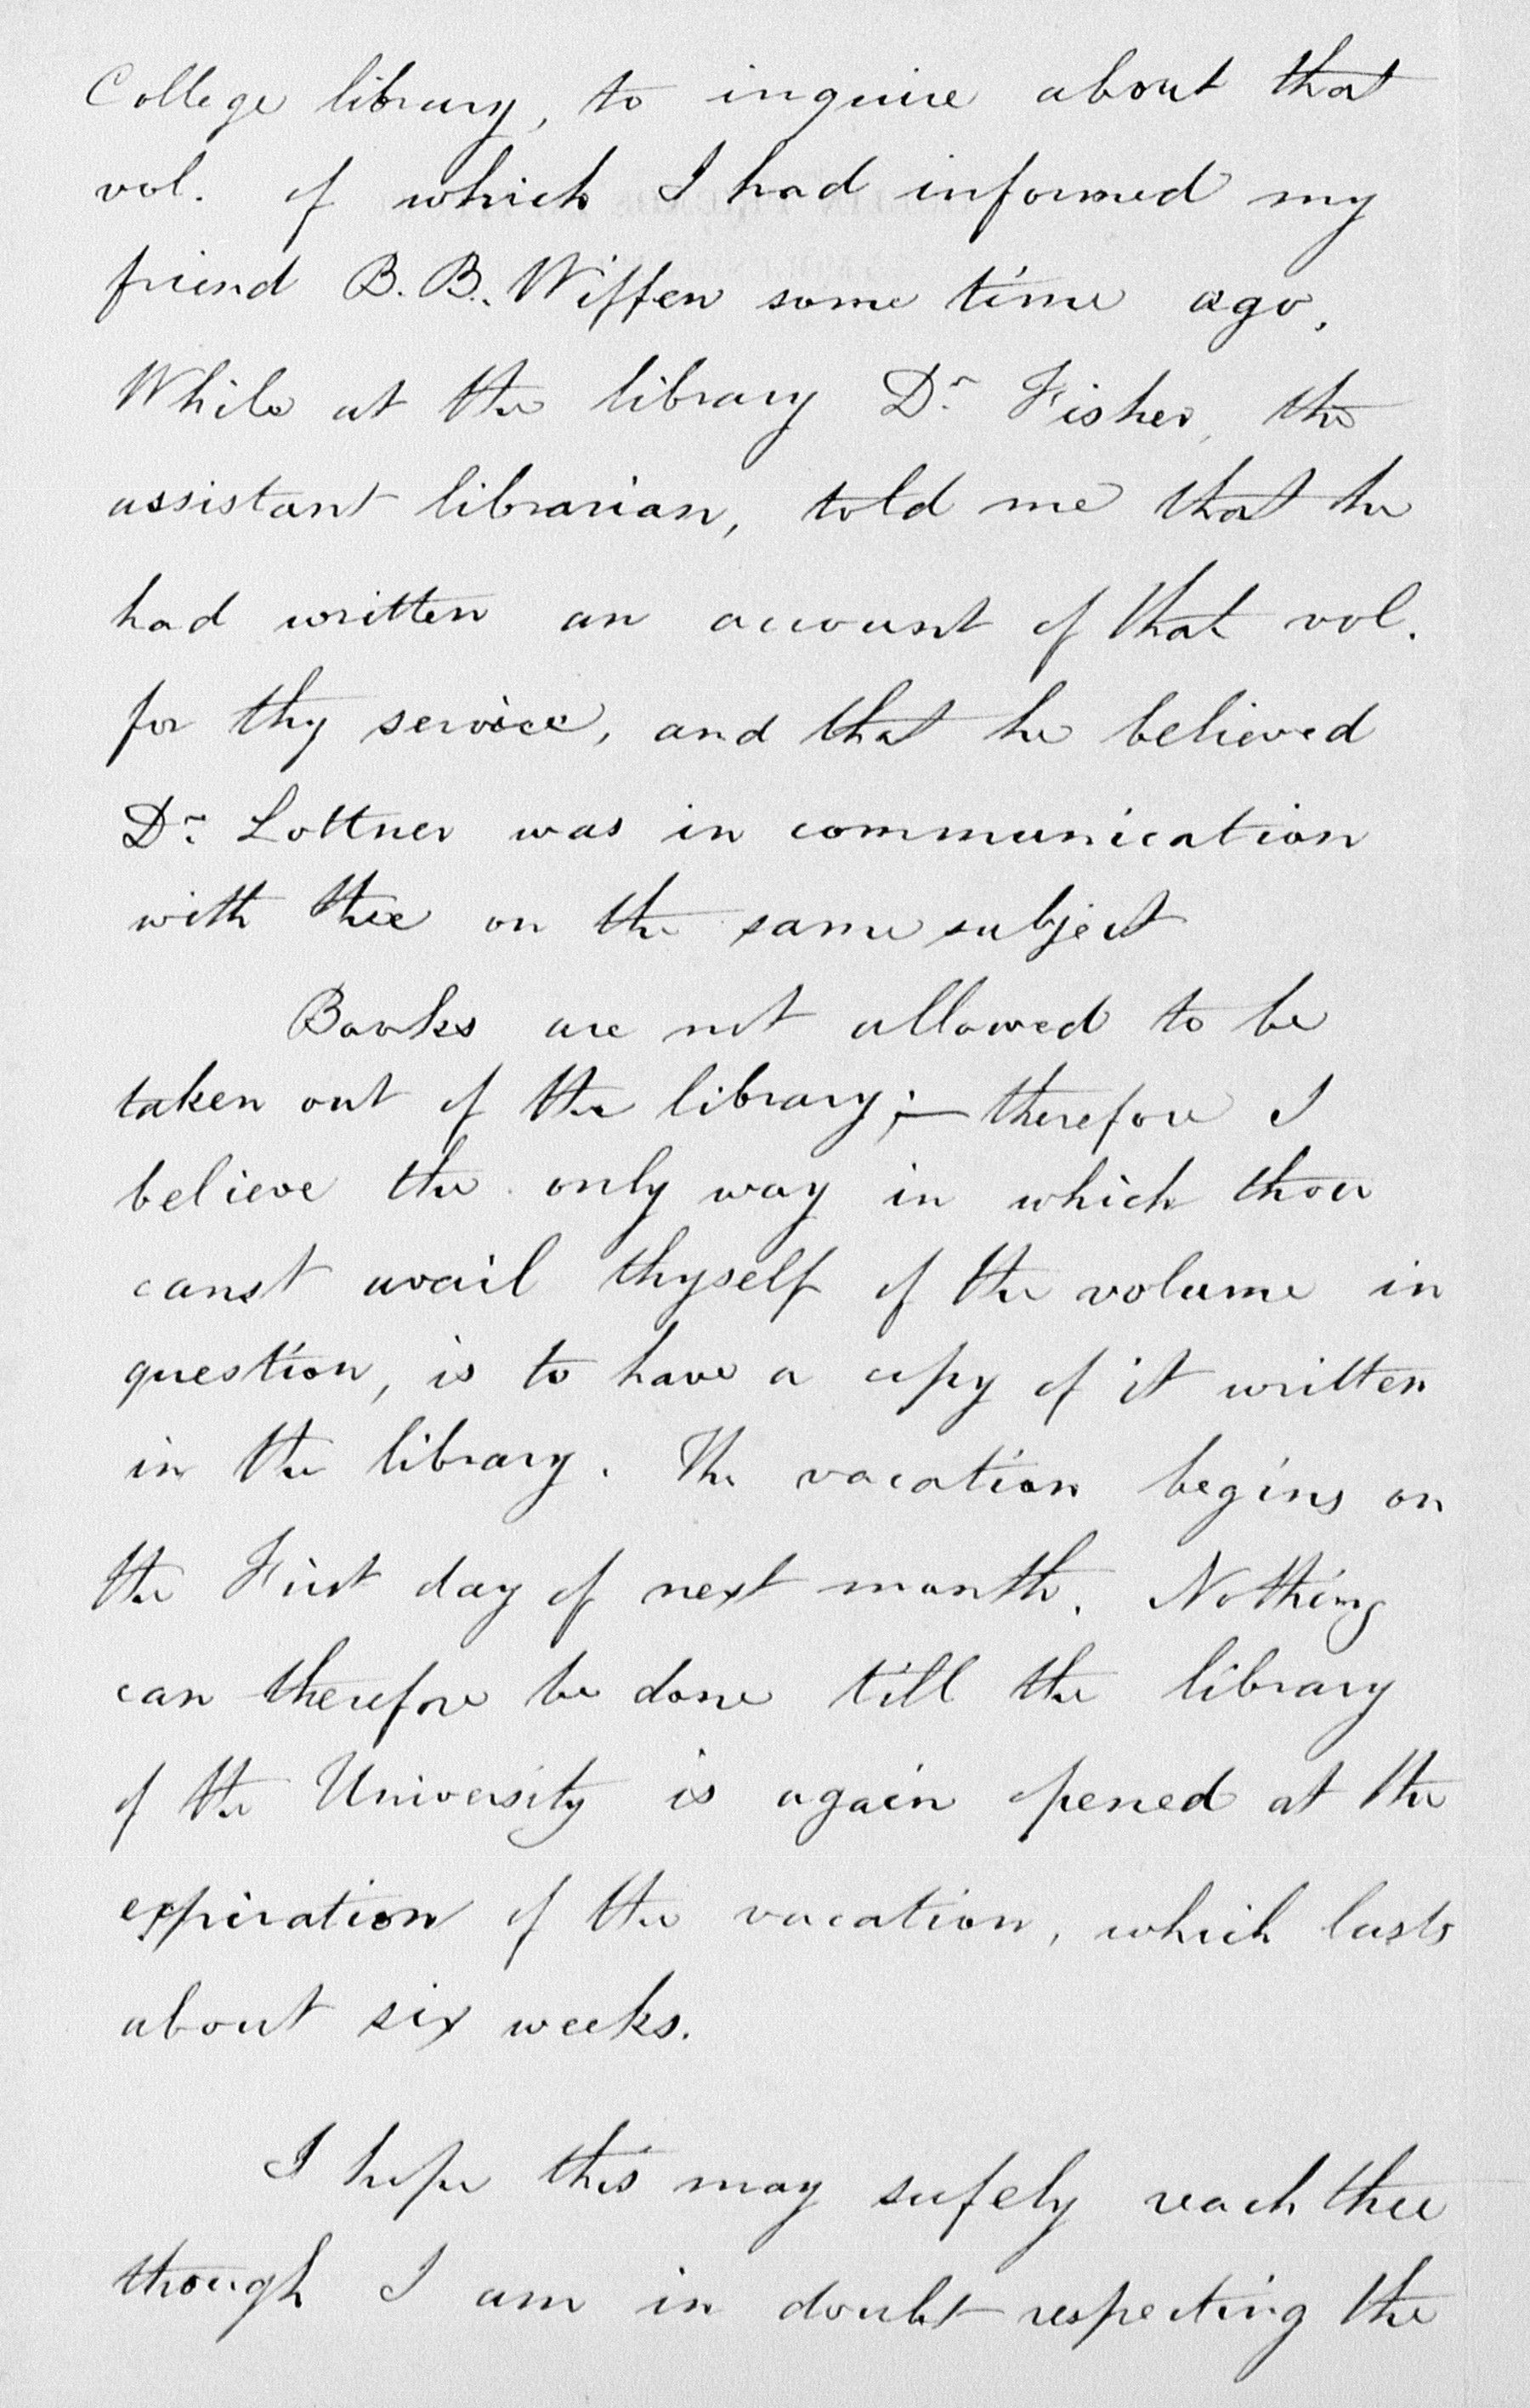 College library, to inquire about that
vol. of which I had informed my
friend B. B. Wiffen some time ago.
While at the library Dr. Fisher, the
assistant librarian, told me that he
had written an account of that vol.
for thy service, and that he believed
Dr. Lottner was in communication
with thee on the same subject
Books are not allowed to be
taken out of the library;— therefore I
believe the only way in which thou
canst avail thyself of the volume in
question, is to have a copy of it written
in the library. The vacation begins on
the First day of next month. Nothing
can therefore be done till the library
of the University is again opened at the
expiration of the vacation, which lasts
about six weeks.
I hope this may safely reach thee
though I am in doubt respecting the